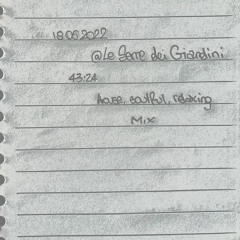 18.05.2022
@Le Serre dei Giardini
43:24
House, soulful, relaxing
Mix